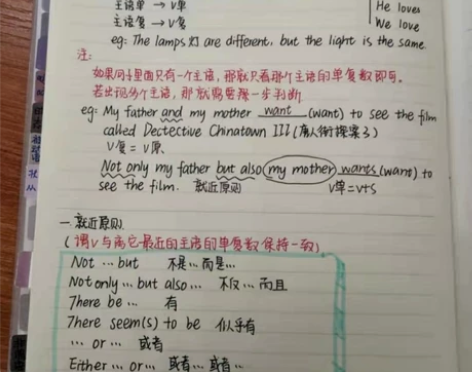 主语单 → V单
He loves
主语复 → V复
We love
eg: The lamps 灯 are different, but the light is the same
注:
如果句子里面只有一个主语, 那就只看那个主语的单复数即可。
若出现多个主语, 那就需要进一步判断
eg: My father and my mother want (want) to see the film
called Dectective Chinatown III (唐人街探案3)
V复 = V原
Not only my father but also (my mother) wants (want) to
see the film. 就近原则 V单=V+s
一. 就近原则
(谓V与离它最近的主语的单复数保持一致)
Not … but 不是…而是…
Not only … but also … 不仅…而且
There be … 有
There seem(s) to be 似乎有
… or … 或者
Either … or … 或者…或者…